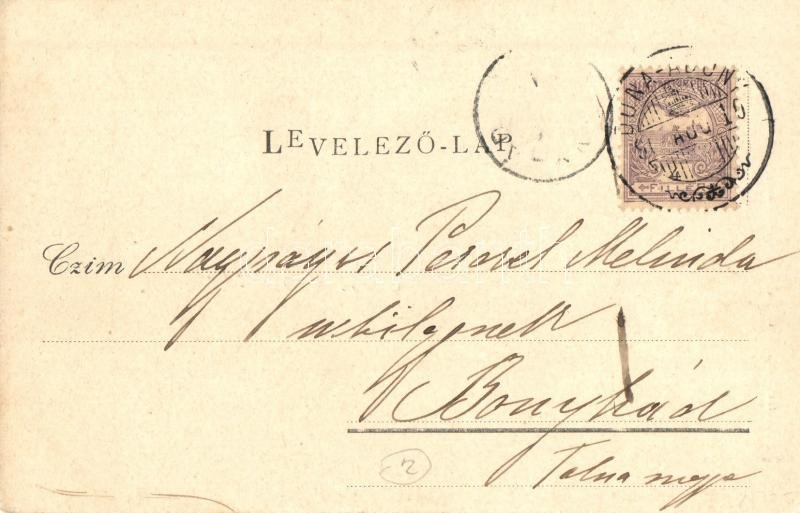 DUNA-ADONY
AUG 15
FILLÉR
LEVELEZŐ-LAP
Czim Nagyságos Perczel Melinda
urhölgynek
Bonyhád
Tolna megye
2